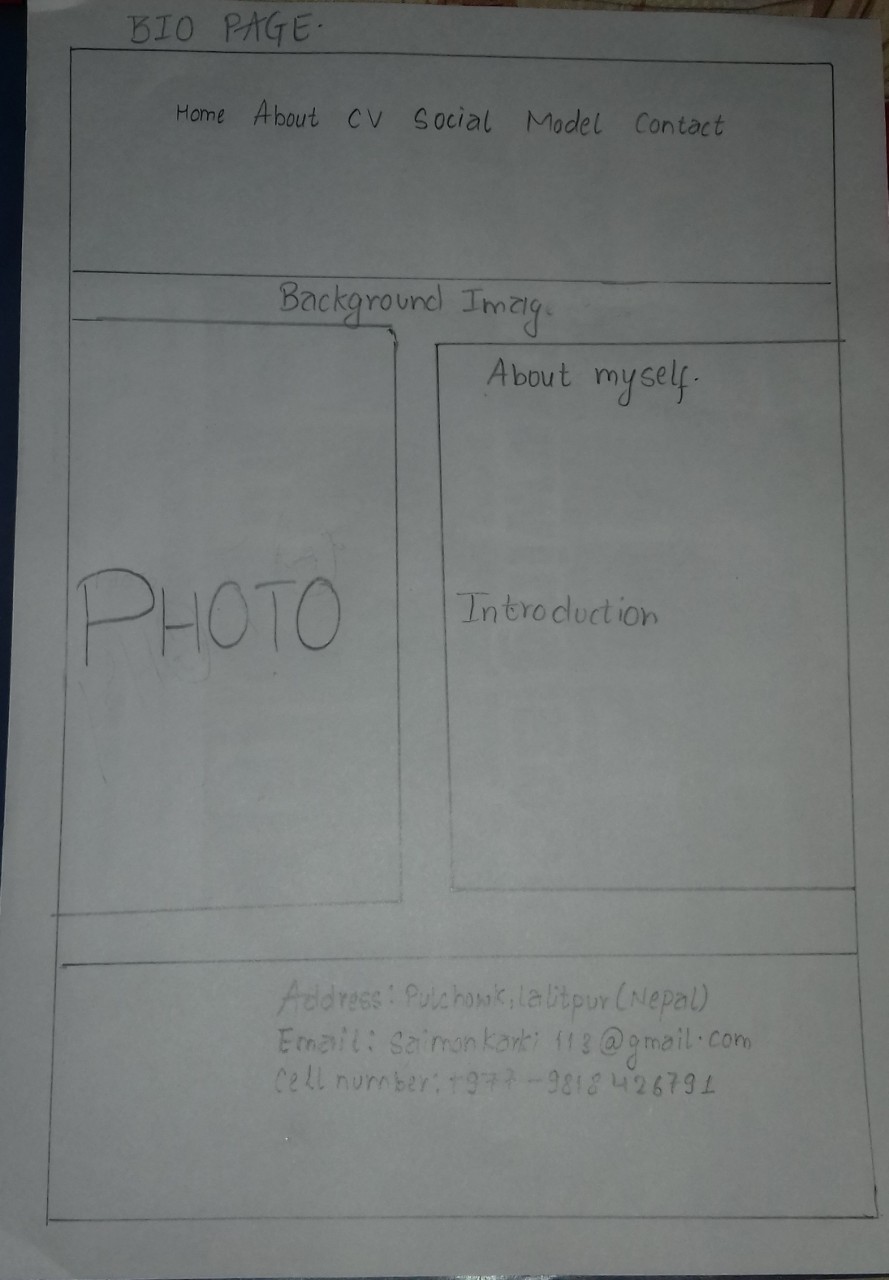 BIO PAGE.
Home About CV Social Model Contact
Background Imag.
About myself.
PHOTO
Introduction
Address: Pulchowk, lalitpur (Nepal)
Email: Saimonkarki113@gmail.com
Cell number: +977-9818426791